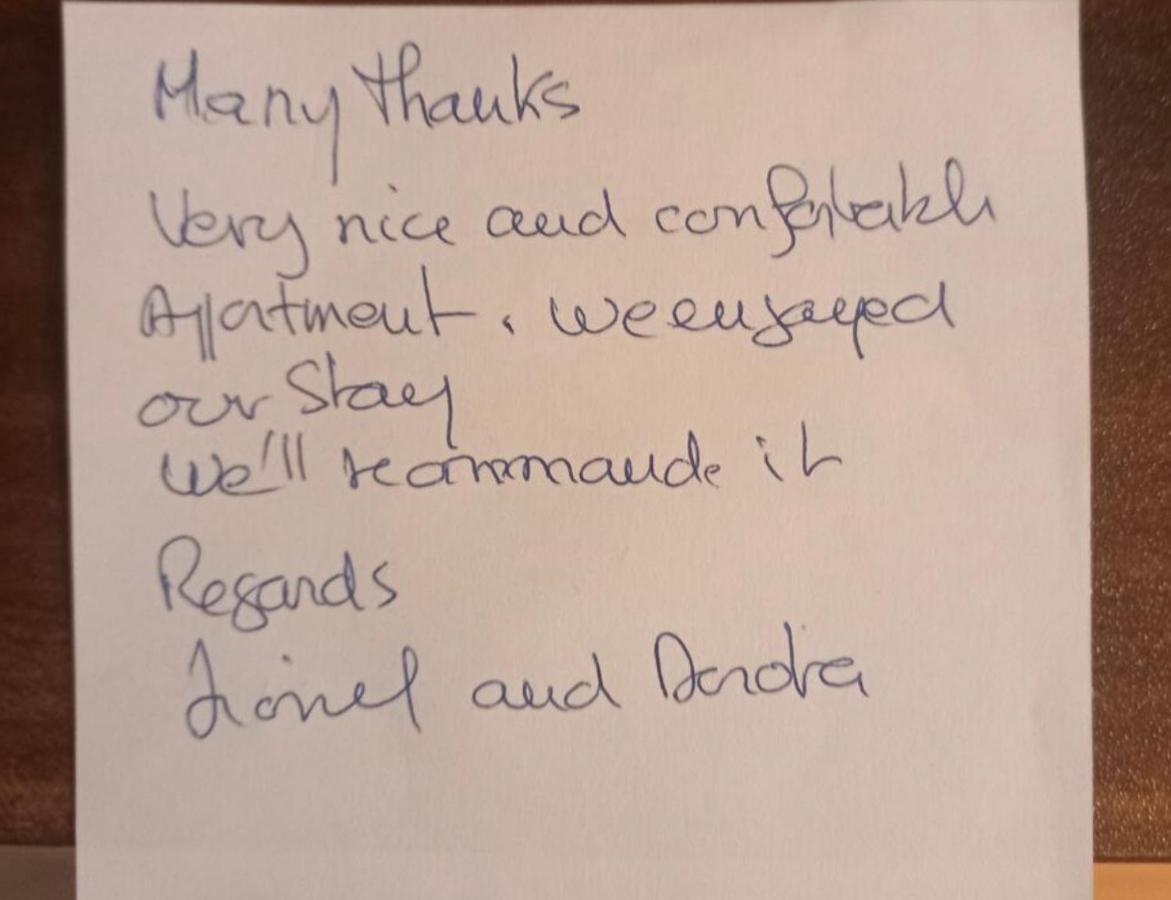 Many thanks
Very nice and confortable
Appartment. We enjoyed
our Stay
We'll recommande it
Regards
Lionel and